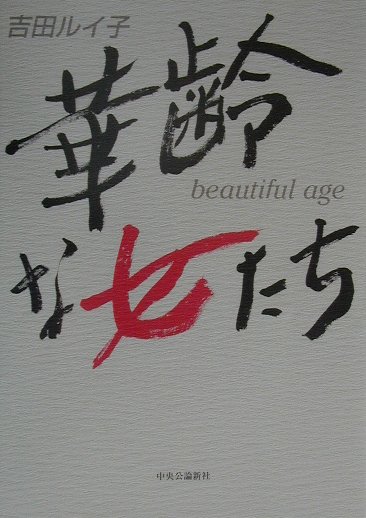 吉田ルイ子
華齢
beautiful age
な女たち
中央公論新社